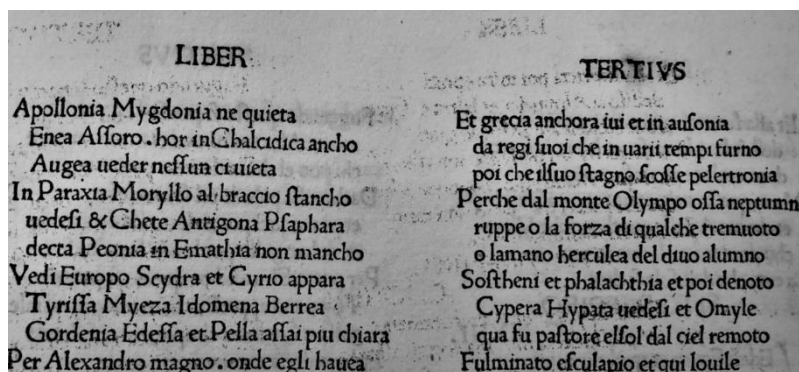 LIBER
Apollonia Mygdonia ne quieta
Enea Aſſoro. hor in Chalcidica ancho
Augea ueder neſſun ci uieta
In Paraxia Moryllo al braccio ſtancho
uedeſi & Chete Antigona Pſaphara
decta Peonia in Emathia non mancho
Vedi Europo Scydra et Cyrio appara
Tyriſſa Myeza Idomena Berrea
Gordenia Edeſſa et Pella aſſai piu chiara
Per Alexandro magno. onde egli hauea
TERTIVS
Et grecia anchora iui et in auſonia
da regi ſuoi che in uarii tempi furno
poi che ilſuo ſtagno ſcoſſe pelertronia
Perche dal monte Olympo oſſa neptumn
ruppe o la forza di qualche tremuoto
o lamano herculea del diuo alumno
Soſtheni et phalachthia et poi denoto
Cypera Hypata uedeſi et Omyle
qua fu paſtore elſol dal ciel remoto
Fulminato eſculapio et qui louile